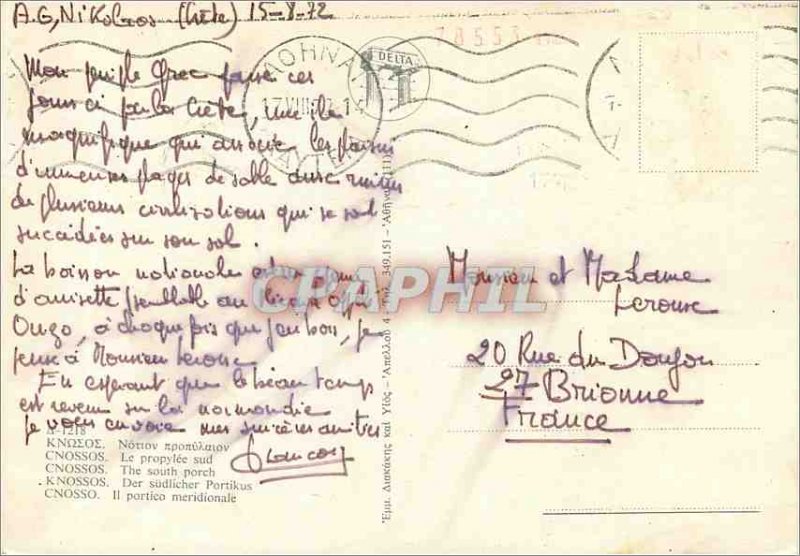 A.G, Nikolaos (Crète) 15-8-72
Mon périple Grec passe ces
jours ci par la Crète, une île
magnifique qui associe les plaisirs
d'immenses plages de sable aux ruines
de plusieurs civilisations qui se sont
succédées sur son sol.
La boisson nationale est une
d'anisette semblable au
Ouzo, à chaque fois que j'en bois, je
pense à Monsieur Lerouse
En espérant que le beau temps
est revenu sur la normandie
je vous envoie mes sincères amitiés
A-1218
ΚΝΩΣΟΣ. Νότιον προπύλαιον
CNOSSOS. Le propylée sud
CNOSSOS. The south porch
KNOSSOS. Der südlicher Portikus
CNOSSO. Il portico meridionale
Ἐμμ. Διακάκης καὶ Υἱὸς - Ἀπέλλου 4 - Τηλ. 349.151 - Ἀθῆναι (111)
DELTA
ΑΘΗΝΑΙ
CPAPHIL
Monsieur et Madame
Lerouse
20 Rue du Donjon
27 Brionne
France